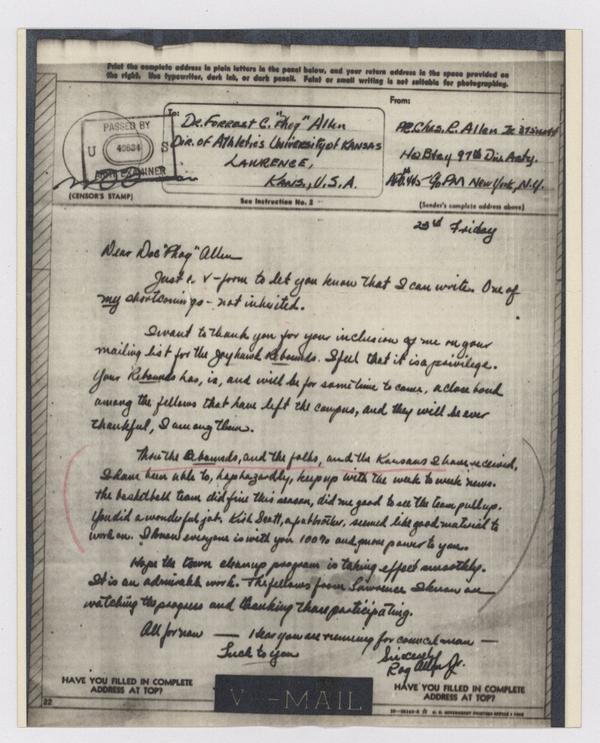 Print the complete address in plain letters in the panel below, and your return address in the space provided on
the right. Use typewriter, dark ink, or dark pencil. Faint or small writing is not suitable for photographing.
To:
From:
PASSED BY
U S
40634
ARMY EXAMINER
(CENSOR'S STAMP)
Dr. Forrest C. "Phog" Allen
Dir. of Athletics University of Kansas
Lawrence,
Kans., U.S.A.
See Instruction No. 2
Pfc Chas. R. Allen Jr.
Hq Btry 97th Div Arty.
APO 445 - % PM New York, N.Y.
(Sender's complete address above)
23rd Friday
Dear Doc "Phog" Allen
Just a V-from to let you know that I can write. One of
my shortcomings - not inherited.
I want to thank you for your inclusion of me on your
mailing list for the Jayhawk Rebounds. I feel that it is a privilege.
Your Rebounds has, is, and will be for some time to come, a close bond
among the fellows that have left the campus, and they will be ever
thankful, I among them.
Thru the Rebounds, and the folks, and the Kansans I have received,
I have been able to, haphazardly, keep up with the week to week news.
The basketball team did fine this season, did me good to see the team pull up.
You did a wonderful job. Kirk Scott, a fraternity brother, seemed like good material to
work on. I know everyone is with you 100% and more power to you.
Hope the town cleanup program is taking effect smoothly.
It is an admirable work. The fellows from Lawrence I know are
watching the progress and thanking those participating.
All for now — I hear you are running for councilman —
Luck to you
Sincerely
Roy Allen Jr.
HAVE YOU FILLED IN COMPLETE
ADDRESS AT TOP?
V - MAIL
HAVE YOU FILLED IN COMPLETE
ADDRESS AT TOP?
22
U. S. GOVERNMENT PRINTING OFFICE